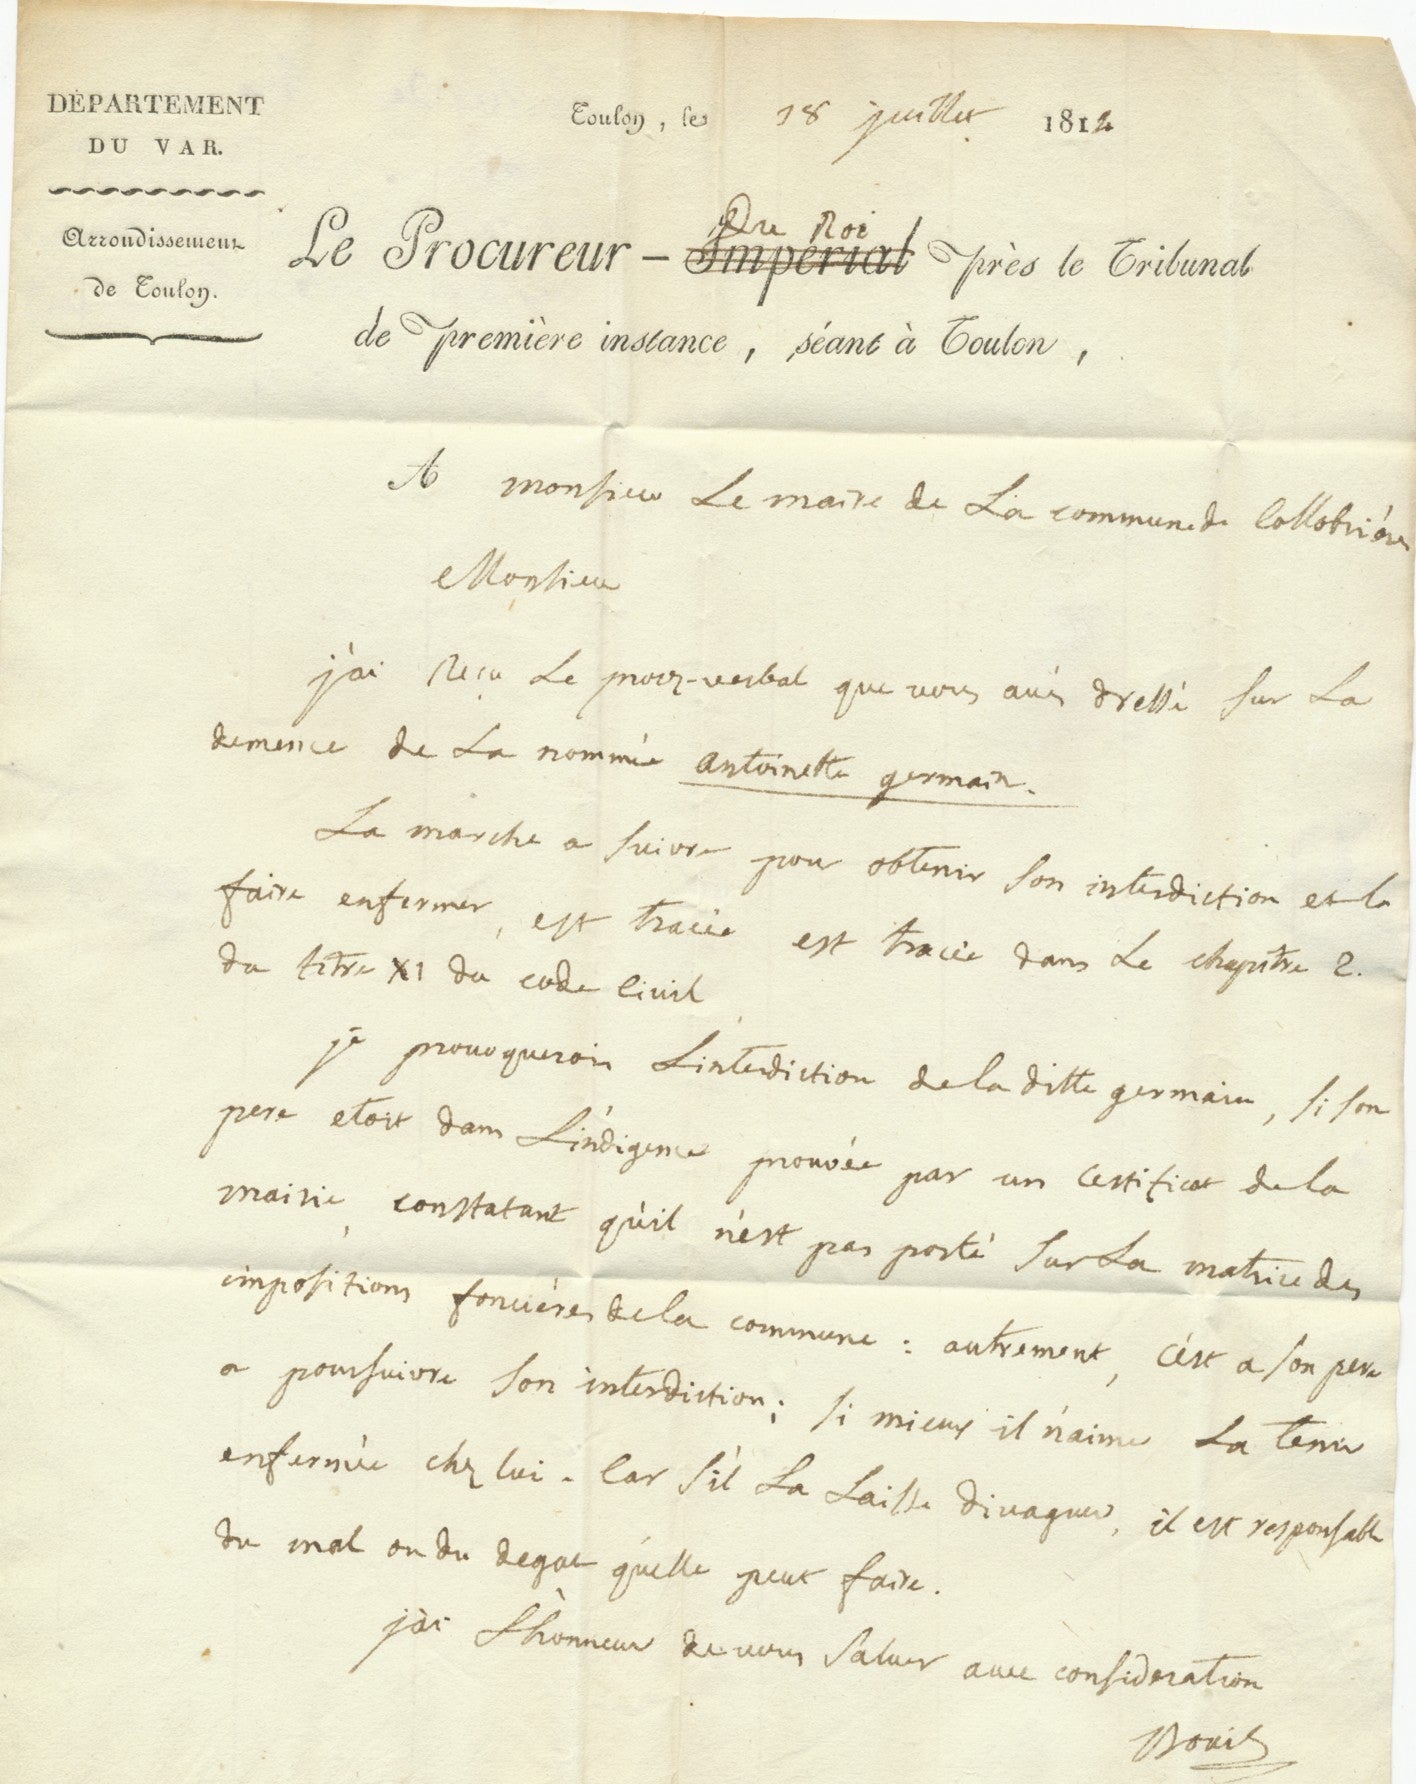 DÉPARTEMENT
DU VAR.
Arrondissement
de Toulon.
Toulon, le 18 juillet 181
Du Roi
Le Procureur - Impérial près le Tribunal
de première instance, séant à Toulon,
A monsieur Le maire de La commune de Collobrières
Monsieur
j'ai Reçu Le procez-verbal que vous avés dressé sur La
demence de La nommée antoinette germain.
La marche a suivre pour obtenir son interdiction et la
faire enfermer, est tracée est tracée dans Le chapitre 2.
du titre XI du code Civil
je provoquerois L'interdiction de la ditte germain, si son
pere etoit dans L'indigence prouvée par un certificat de la
mairie, constatant qu'il n'est pas porté sur La matrice des
impositions foncières de la commune : autrement, c'ést a son pere
a poursuivre son interdiction; si mieux il n'aime La tenir
enfermée chez lui. Car s'il La Laisse divaguer, il est responsable
du mal ou du degat qu'elle peut faire.
j'ai L'honneur de vous saluer avec consideration